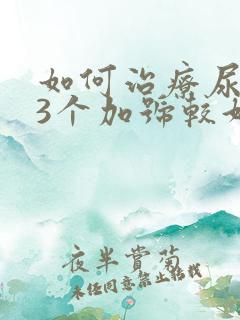 如何治疗尿
3个加号较好
夜半賞菊
未经同意禁止转载